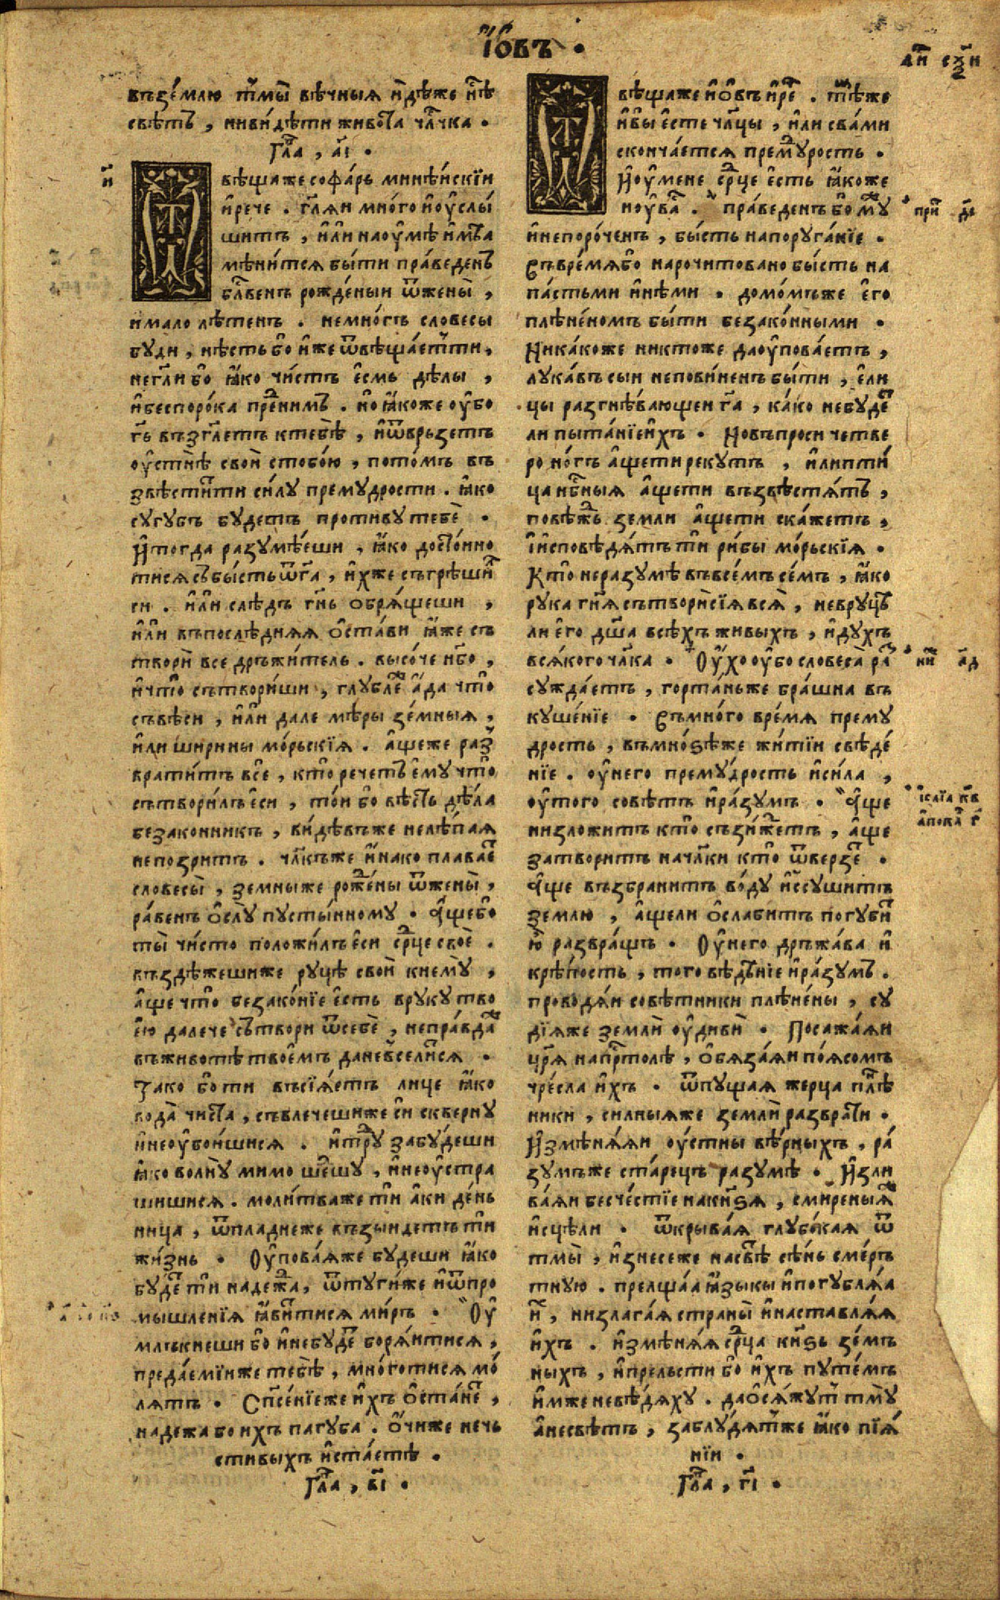 І҆́овъ ·
въ зе́млю тмы̀ вѣ́чныя и҆дѣ́же нѣ́с
свѣ́тъ , ни ви́дѣти живота̀ чл҃чка ·
Гла , а҃і ·
ѿвѣща́же софа́рь мине́искїи
и҆ рече . гл҃яи мно́го и҆ оу҆слы́
шитъ , и҆ли́ на оу҆мѣ̀ и҆мѣ́а
мѣни́тся бы́ти пра́веденъ
бл҃венъ рожде́ныи ѿ жены̀ ,
и мало лѣ́тенъ . не мно́гъ словесы
буди , нѣ́сть бо и҆́же ѿвѣща́етъ ти ,
не гл҃и бо ꙗ҆́ко чи́стъ е҆́смь дѣ́лы ,
и҆ беспоро́ка пре́ ни́мъ . но ꙗ҆́коже оу҆бо
г҃ь възгл҃етъ к тебѣ̀ , и҆ ѿвръзетъ
оу҆стнѣ̀ свои̑ с тобо́ю , пото́мъ въ
звѣстити си́лу премудрости . ꙗ҆ко
сугубъ будетъ противу тебѐ .
И҆ тогда разумѣ́еши , ꙗ҆́ко досто́ино
ти ся събы́сть ѿ г҃а , и҆́хже съгрѣши́л
еси . и҆ли́ слѣдъ гн҃ь обря́щеши ,
и҆ли́ въ послѣ́дняя о҆ста́ви ꙗ҆́же съ
твори̑ все дръжи́тель . высо́че нб҃о ,
и҆ что̀ сътвори́ши , глубле а҆́да что̀
съвѣ́си , и҆ли́ дале мѣ́ры зе́мныя ,
и҆ли ширины мо́рьскїя . а҆́ще же раз
врати́тъ всѐ , кто̀ речетъ є҆му̀ что̀
сътвори́лъ еси , то́и бо вѣ́сть дѣ́ла
безаконникъ , ви́дѣвъ же нелѣ́пая
непозритъ . чл҃къ же и҆́нако плавае
словесы̀ , земны́ же роже́ны ѿ жены̀ ,
ра́венъ о҆слу̀ пусты́нному . а҆́ще бо
ты̀ чи́сто положи́лъ еси ср҃це своѐ .
въздѣ́жеши же руцѣ̀ свои̑ к нему̀ ,
а҆́ще что̀ безако́нїе е҆́сть в руку тво
е҆́ю далече сътвори ѿ себѐ , неправда
въ животѣ̀ твое҆́мъ да не вселится .
Тако бо ти въсїя́етъ лице ꙗ҆ко
вода̀ чиста , съвлечешиже си скверну
и҆ не оу҆бои́шися . и҆ тру̀ забу́деши
ꙗ҆́ко волну̀ мимо ше́шу , и҆ не оу҆стра
шишися . моли́тваже ти̑ а҆́ки де́нь
ница , ѿ пладнеже възыидетъ ти̑
жи́знь . Оу҆пова́яже будеши ꙗ҆ко
бу́де ти̑ надежа , ѿ туги́же и҆ ѿ про
мышленїя ꙗ҆ви́тися ми́ръ . Оу҆
млъкнеши бо и҆ не буде боряи́ тися ,
предае́мїи же тебѣ̀ , мно́го ти ся мо́
лятъ . Сп҃се́нїеже и҆хъ о҆ста́не ,
надежа бо ихъ пагуба . о҆́чиже нечь
стивыхъ и҆ста́етѣ .
Гла , в҃і ·
и҃
ѿвѣщаже і҆́овъ и҆ ре́ . та́же
и҆ вы̀ е҆́сте чл҃цы , и҆ли с ва́ми
сконча́ется премурость .
И҆ оу҆ мене ср҃це е҆́сть ꙗ҆́коже
и оу҆ ва . пра́веденъ бо му
и҆ непоро́ченъ , бы́сть на поруга́нїе .
Въ вре́мя бо нарочи́то вано бы́сть па
па́стьми и҆нѣ́ми . домо́мъже е҆го
плѣне́номъ бы́ти безако́нными .
Ника́коже никто́же да оу҆пова́етъ ,
лука́въ сыи непови́ненъ бы́ти , е҆ли
цы разгнѣ́вающеи г҃а , ка́ко не буде
ли пыта́нїе и҆́хъ . Но въпроси четве
роно́гъ а҆́ще ти рекутъ , и҆ли пти́
ца нб҃ныя а҆́ще ти възвѣстя́тъ ,
повѣ́жь земли а҆́ще ти ска́жетъ ,
и҆ и҆сповѣ́дятъ ти̑ ри́бы мо́рьскїя .
Кто̀ не разумѣ̀ въ все́мъ се́мъ , ꙗ҆ко
рука гн҃я сътвори̑ сїя вся̀ , не в руцѣ
ли е҆го дш҃а всѣ́хъ живы́хъ , и҆ ду́хъ
вся́кого чл҃ка . Оу҆́хо оу҆бо словеса̀ ра
сужда́етъ , горта́ньже бра́шна въ
куше́нїе . Въ мно́го вре́мя прему
дрость , въ мно́зѣже житїи свѣде́
нїе . оу҆ него прему́дрость и҆ си́ла ,
оу҆ того совѣ́тъ и҆ ра́зумъ . а҆́ще
низложитъ кто̀ съзи́жетъ , а҆́ще
затворитъ на чл҃ки кто̀ ѿверзе .
а҆́ще възбранитъ во́ду и҆ссуши́тъ
землю , а҆́щели о҆слабитъ погуби́т
ю҆̀ развра́щь . Оу҆ него дръжа́ва и҆
крѣ́пость , того вѣ́дѣнїе и҆ ра́зумъ .
проводя́и совѣ́тники плѣне́ны , су
дїя́же земли̑ оу҆диви̑ . Посажа́яи
цр҃я на пр҃толѣ , о҆бяза́яи по́ясомъ
чре́сла и҆́хъ . ѿпуща́я жерца плѣ
ники , силныя́же земли̑ разврати .
И҆змѣня́яи оу҆стны вѣ́рныхъ , ра́
зумъже ста́рець разумѣ̀ . И҆зли
ва́яи бесче́стїе на кн҃ѕя , смире́ныя
и҆сцѣли . ѿкрыва́я глубо́кая ѿ
тмы̀ , и҆знесе́же на свѣ сѣ́нь сме́рть
ную . прелща́а ꙗ҆зы́ки и҆ погубля́а
и҆ , низлага́я страны̀ и҆ наставля́я
и҆́хъ . и҆змѣня́я ср҃ца кн҃ѕь зе́мъ
ныхъ , и҆ прельсти́ бо и҆́хъ путе́мъ
и҆́мже не вѣ́дяху . да о҆ся́жутъ тму̀
а҆ не свѣтъ , заблу́дятъже ꙗ҆ко пїя́
нїи .
Гла , г҃і ·
при дє
ни҃ а҃д
і҆са́їа к҃в
а҆пока́ г҃